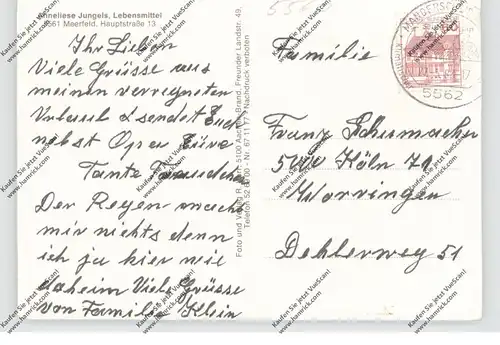 Anneliese Jungels, Lebensmittel
5561 Meerfeld, Hauptstraße 13
Ihr Lieben
Viele Grüsse aus
meinen verregneten
Urlaub sendet Euch
nebst Opa Eure
Tante
Der Regen macht
mir nichts denn
ich ja hier wie
daheim Viele Grüsse
von Familie Klein
Foto und Verlag R. Brand, Freunder Landstr. 49,
5100 Aachen
Telefon 52 Nr 67 11 77 Nachdruck verboten
MANDERSCHEID
5562
Familie
Franz Schumacher
5000 Köln 71
Worringen
Dehlerweg 51
Kaufen Sie jetzt VueScan!
www.hamrick.com